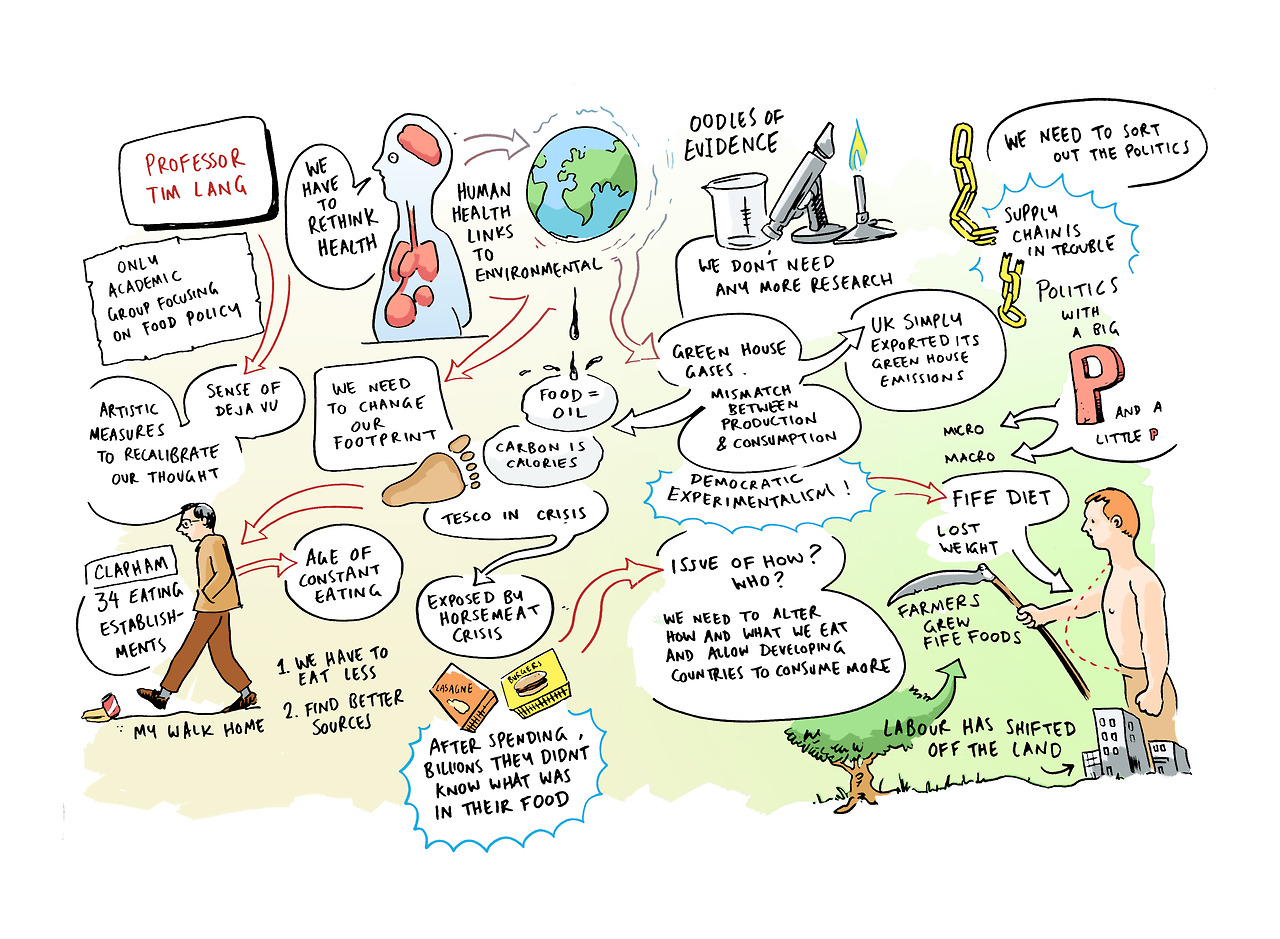 PROFESSOR
TIM LANG
ONLY
ACADEMIC
GROUP FOCUSING
ON FOOD POLICY
SENSE OF
DEJA VU
ARTISTIC
MEASURES
TO RECALIBRATE
OUR THOUGHT
WE
HAVE
TO
RETHINK
HEALTH
HUMAN
HEALTH
LINKS
TO
ENVIRONMENTAL
WE NEED
TO CHANGE
OUR
FOOTPRINT
FOOD =
OIL
CARBON IS
CALORIES
TESCO IN CRISIS
EXPOSED BY
HORSEMEAT
CRISIS
LASAGNE
BURGERS
AFTER SPENDING,
BILLIONS THEY DIDNT
KNOW WHAT WAS
IN THEIR FOOD
CLAPHAM
34 EATING
ESTABLISH-
MENTS
AGE OF
CONSTANT
EATING
1. WE HAVE TO
EAT LESS
2. FIND BETTER
SOURCES
MY WALK HOME
OODLES OF
EVIDENCE
WE DON'T NEED
ANY MORE RESEARCH
GREEN HOUSE
GASES.
MISMATCH
BETWEEN
PRODUCTION
& CONSUMPTION
UK SIMPLY
EXPORTED ITS
GREEN HOUSE
EMISSIONS
DEMOCRATIC
EXPERIMENTALISM!
ISSUE OF HOW?
WHO?
WE NEED TO ALTER
HOW AND WHAT WE EAT
AND ALLOW DEVELOPING
COUNTRIES TO CONSUME MORE
WE NEED TO SORT
OUT THE POLITICS
SUPPLY
CHAIN IS
IN TROUBLE
POLITICS
WITH
A BIG
P
AND A
LITTLE P
MICRO
MACRO
FIFE DIET
LOST
WEIGHT
FARMERS
GREW
FIFE FOODS
LABOUR HAS SHIFTED
OFF THE LAND